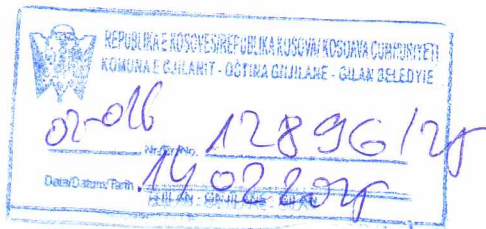 REPUBLIKA E KOSOVËS/REPUBLIKA KOSOVA/KOSOVA CUMHURİYETİ
KOMUNA E GJILANIT - OPŠTINA GNJILANE - GILAN BELEDYIE
02-016
Nr/Br/No. 12896/25
Data/Datum/Tarih 14 02 2025
GJILAN - GNJILANE - GILAN